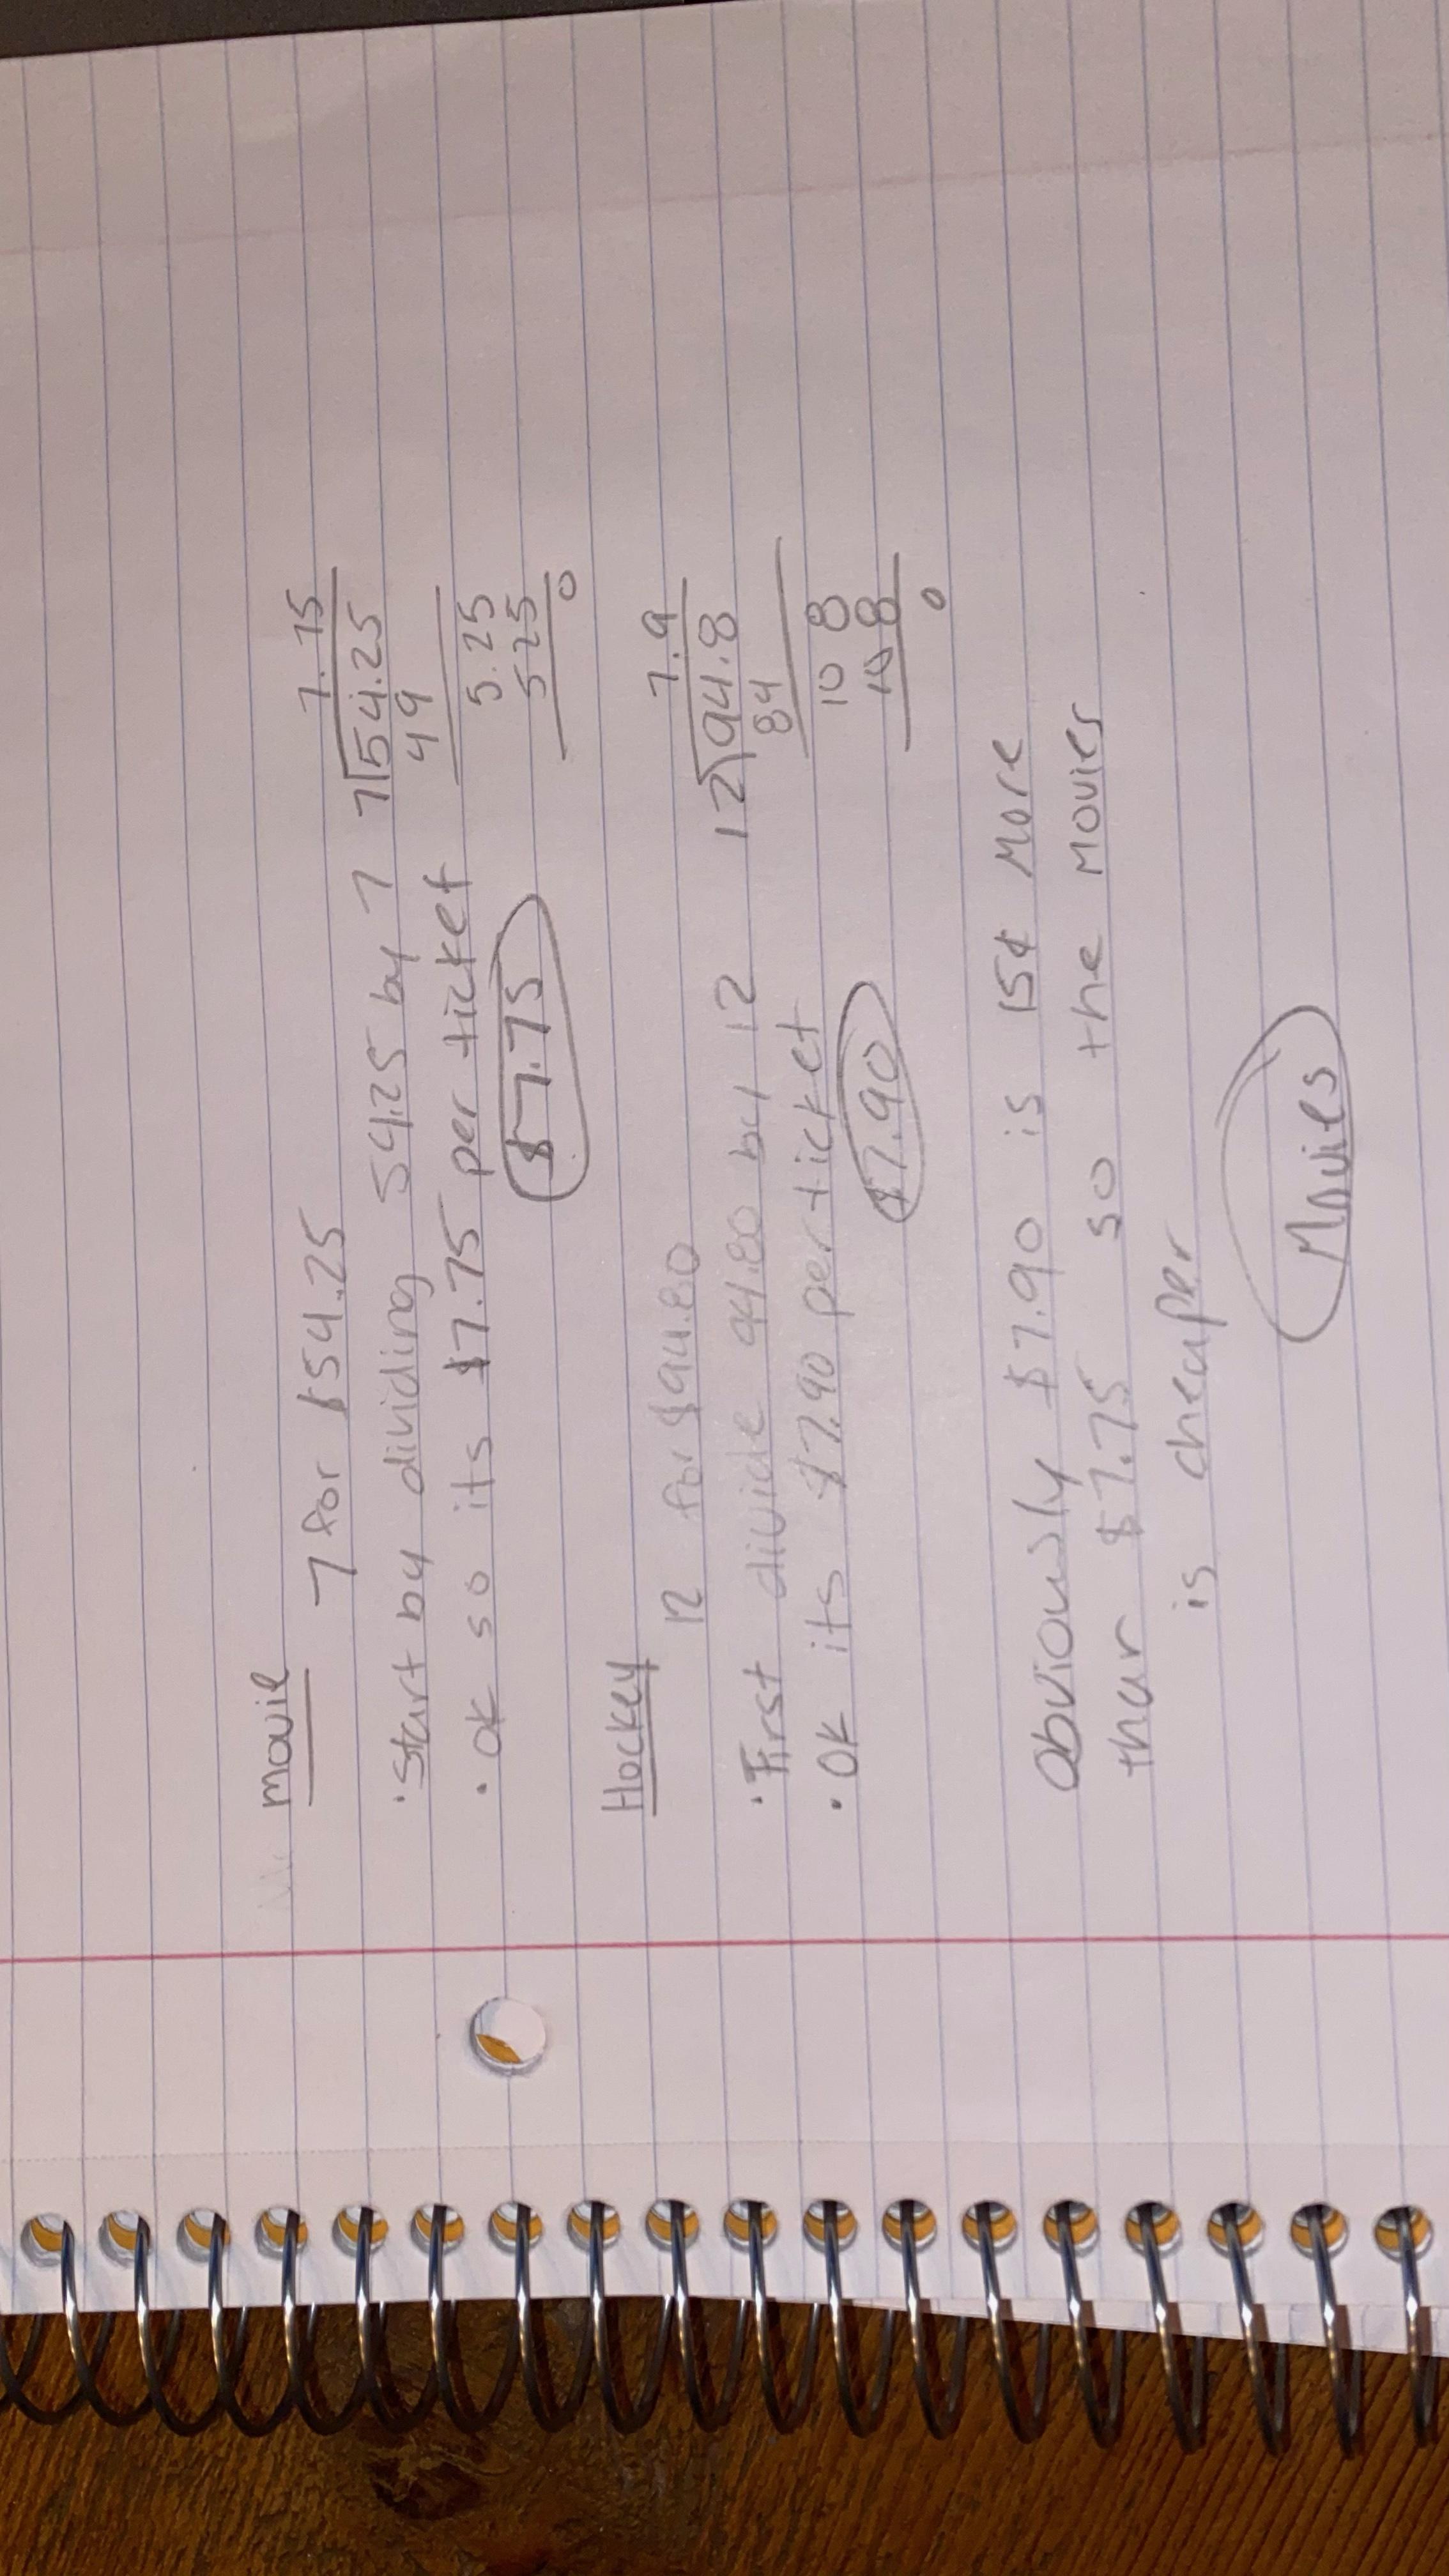 movie
7 for $54.25
7.75
• start by dividing 54.25 by 7 7)54.25
49
• OK so its $7.75 per ticket 5.25
$7.75 525
0
Hockey
12 for $94.80
7.9
• First divide 94.80 by 12 12)94.8
84
• OK its $7.90 per ticket 10 8
$7.90 10 8
0
obviously $7.90 is 15¢ more
than $7.75 so the movies
is cheaper
Movies